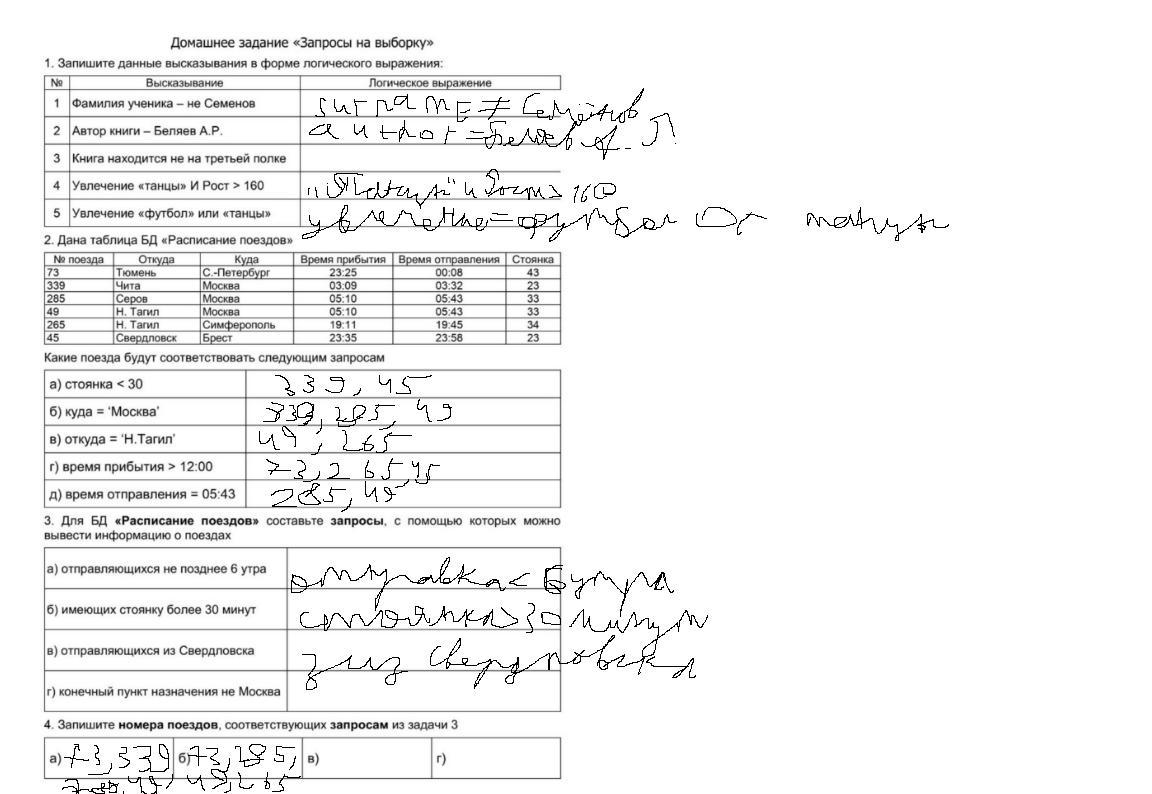 Домашнее задание «Запросы на выборку»
1. Запишите данные высказывания в форме логического выражения:
№ Высказывание Логическое выражение
1 Фамилия ученика – не Семенов surname ≠ Семёнов
2 Автор книги – Беляев А.Р. author = Беляев А.
3 Книга находится не на третьей полке
4 Увлечение «танцы» И Рост > 160 и Рост > 160
5 Увлечение «футбол» или «танцы» увлечение = футбол Or танцы
2. Дана таблица БД «Расписание поездов»
№ поезда Откуда Куда Время прибытия Время отправления Стоянка
73 Тюмень С.-Петербург 23:25 00:08 43
339 Чита Москва 03:09 03:32 23
285 Серов Москва 05:10 05:43 33
49 Н. Тагил Москва 05:10 05:43 33
265 Н. Тагил Симферополь 19:11 19:45 34
45 Свердловск Брест 23:35 23:58 23
Какие поезда будут соответствовать следующим запросам
а) стоянка < 30 339, 45
б) куда = ‘Москва’ 339, 285, 49
в) откуда = ‘Н.Тагил’ 49, 265
г) время прибытия > 12:00 73, 265, 45
д) время отправления = 05:43 285, 49
3. Для БД «Расписание поездов» составьте запросы, с помощью которых можно
вывести информацию о поездах
а) отправляющихся не позднее 6 утра отправка < 6 утра
б) имеющих стоянку более 30 минут стоянка > 30 минут
в) отправляющихся из Свердловска из Свердловска
г) конечный пункт назначения не Москва
4. Запишите номера поездов, соответствующих запросам из задачи 3
а) 73, 339 б) 73, 285, в) г)
49, 49, 265